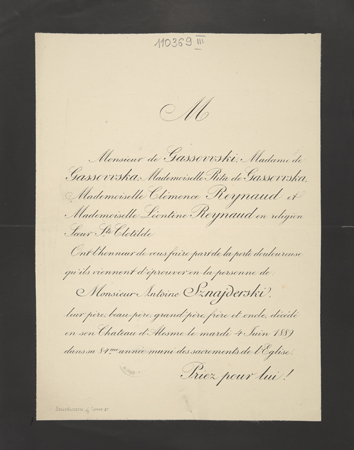 110369 III
M
Monsieur de Gassowski, Madame de
Gassowska, Mademoiselle Rita de Gassowska,
Mademoiselle Clémence Reynaud et
Mademoiselle Léontine Reynaud en religion
Sœur Ste Clotilde.
Ont l'honneur de vous faire part de la perte douloureuse
qu'ils viennent d'éprouver en la personne de
Monsieur Antoine Sznajderski,
leur père, beau-père, grand-père, frère et oncle, décédé
en son Château d'Alesme le mardi 4 Juin 1889
dans sa 84me année muni des sacrements de l'Église.
Priez pour lui!